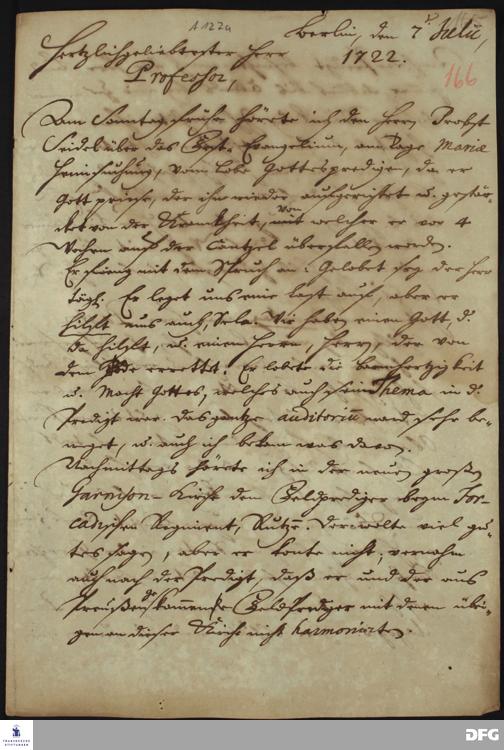 A 127a
Berlin, den 7. Julii,
Hertzlichgeliebtester Herr 1722.
Professor,
166
Am Sonntag frühe hörete ich den Herrn Probst
Seidel über das Fest-Evangelium, am Tage Mariæ
Heimsuchung, vom Lobe Gottes predigen, da er
Gott priese, der ihn wieder aufgerichtet u. gestär-
cket von der Kranckheit, von welcher er vor 4
Wochen auf der Cantzel überfallen worden.
Er fieng mit dem Spruch an: Gelobet sey der Herr
tägl. Er leget uns eine Last auf, aber er
hilfft uns auch, Sela. Wir haben einen Gott, d.
da hilfft, u. einen Herrn, Herrn, der von
dem Tode errettet. Er lobete die Barmhertzigkeit
u. Macht Gottes, welches auch sein Thema in d.
Predigt war. Das gantze auditorium ward sehr be-
weget, u. auch ich bekam was davon.
Nachmittags hörete ich in der neuen großen
Garnison-Kirch den Feldprediger beym For-
cadischen Regiment, Dor wolte viel gu-
tes sagen, aber er konte nicht; vernahm
auch nach der Predigt, daß er und der aus
Preußen kommende Feldprediger mit denen übri-
gen an dieser Kirche nicht harmonirten.
FRANCKESCHE
STIFTUNGEN
DFG